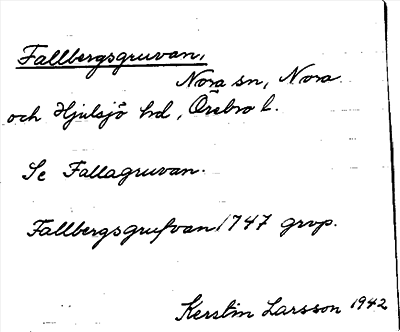 Fallbergsgruvan,
Nora sn, Nora
och Hjulsjö hd, Örebro l.
Se Fallagruvan.
Fallbergsgrufvan 1747 grvp.
Kerstin Larsson 1942